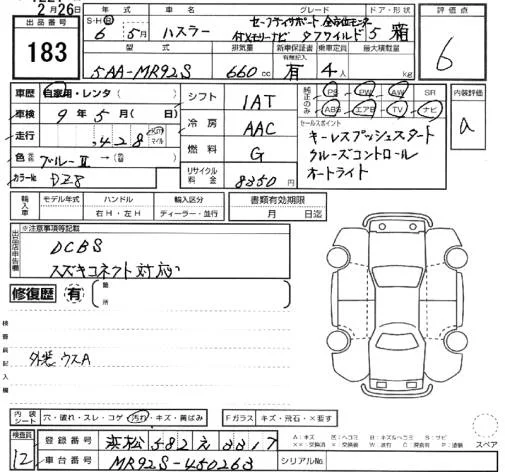 2月26日
出品番号 183
S・H・R 車名 グレード ドア・形状
6年 5月 ハスラー セーフティサポート 全方位モニター
付メモリーナビ タフワイルド 5 箱
型式 排気量 新車保証書 乗車定員 最大積載量
有無記入
5AA-MR92S 660cc 有 4人 kg
評価点
6
車歴 自家用・レンタ( )
車検 9年5月( 日)
走行 ,428 km マイル
色 ブルーⅡ →( )
カラーNo DZ8
シフト 1AT
冷房 AAC
燃料 G
リサイクル料金 8350円
純正のみ PS PW AW SR
ABS エアB TV ナビ
セールスポイント
キーレスプッシュスタート
クルーズコントロール
オートライト
内装評価
a
輸入車 モデル年式 ハンドル 輸入区分
右H・左H ディーラー・並行
書類有効期限
月 日迄
出品店申告欄
※注意事項等記載
DCBS
スズキコネクト対応
修復歴 有 箇所
検査員記入欄
外装 ウスA
内装 シート 穴・破れ・スレ・コゲ・汚れ・キズ・黄ばみ
Fガラス キズ・飛石・×要す
検査員 12
登録番号 浜松 582 え 3317
車台番号 MR92S-450263
シリアルNo.
スペア